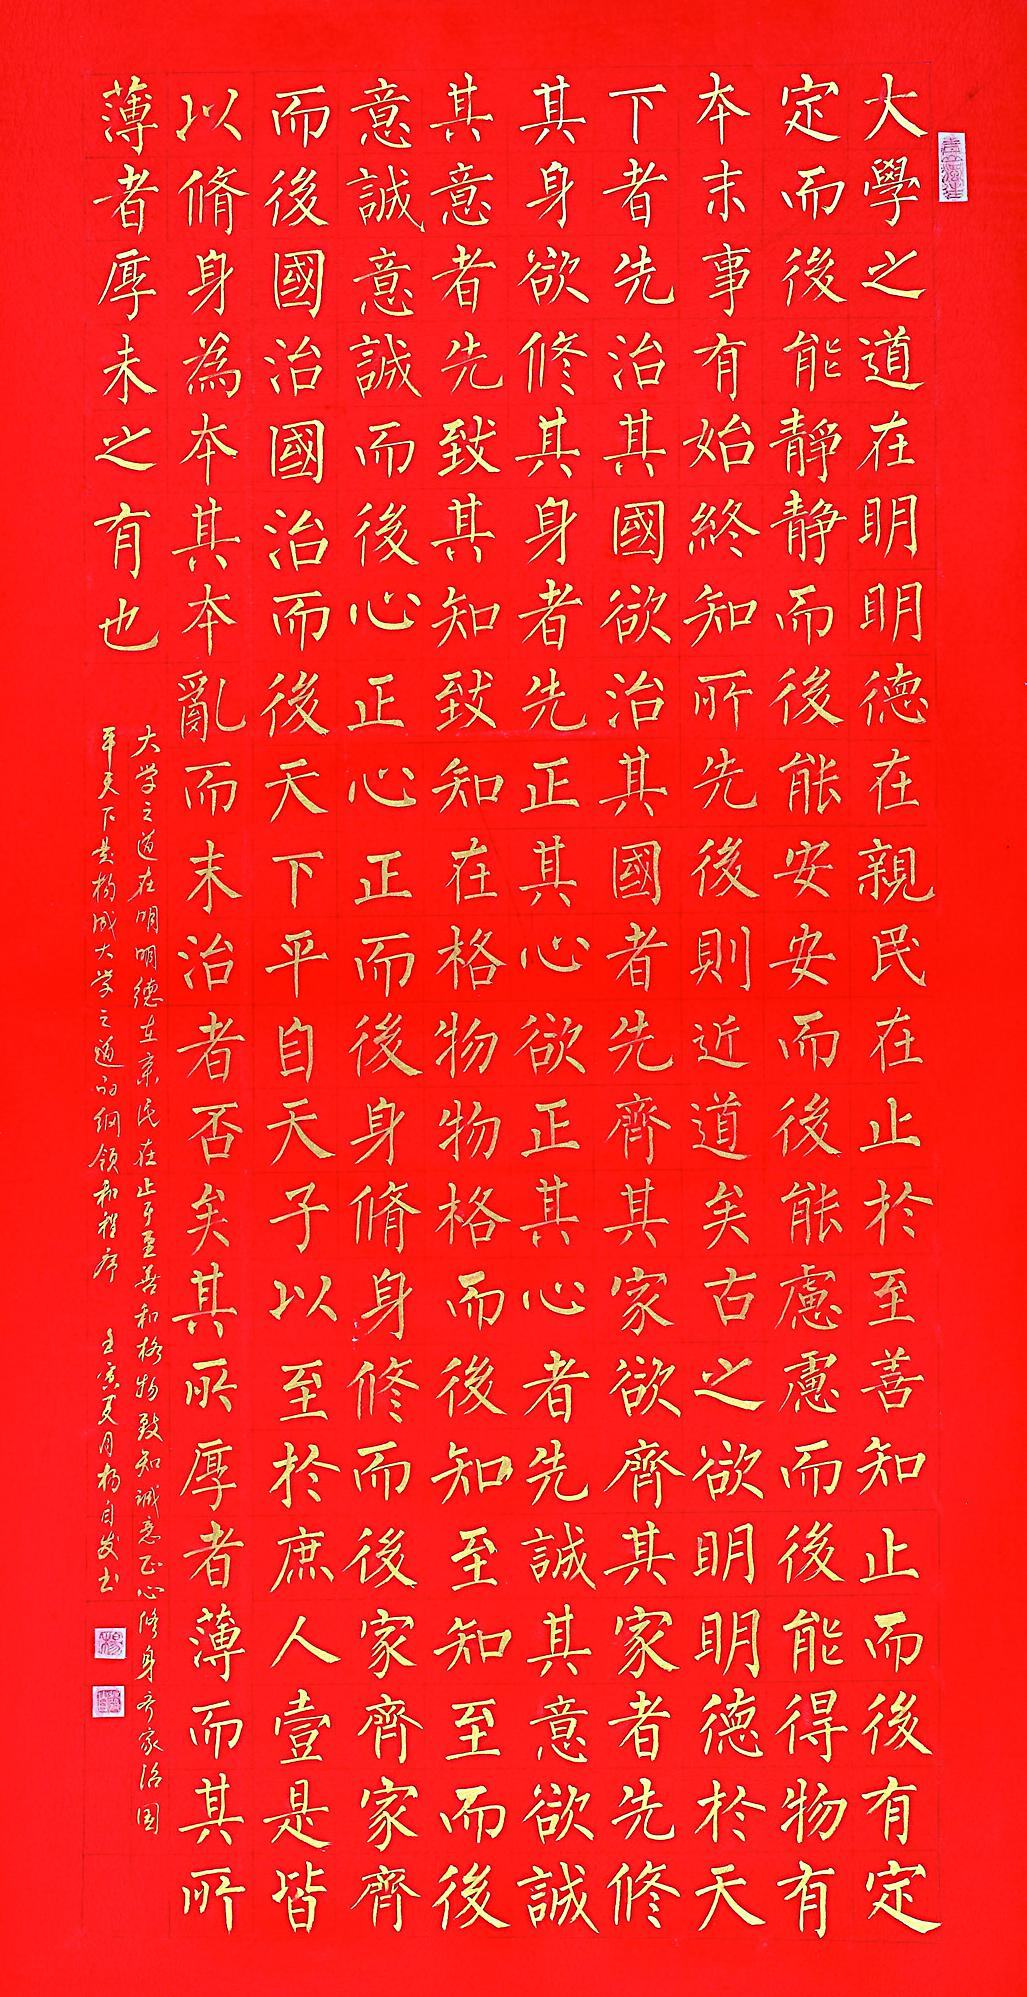 大學之道在明明德在親民在止於至善知止而後有定
定而後能靜靜而後能安安而後能慮慮而後能得物有
本末事有始終知所先後則近道矣古之欲明明德於天
下者先治其國欲治其國者先齊其家欲齊其家者先修
其身欲修其身者先正其心欲正其心者先誠其意欲誠
其意者先致其知致知在格物物格而後知至知至而後
意誠意誠而後心正心正而後身脩身修而後家齊家齊
而後國治國治而後天下平自天子以至於庶人壹是皆
以脩身為本其本亂而末治者否矣其所厚者薄而其所
薄者厚未之有也
大学之道在明明德在亲民在止于至善和格物致知诚意正心修身齐家治国
平天下共构成大学之道的纲领和程序 壬寅夏月杨自发书